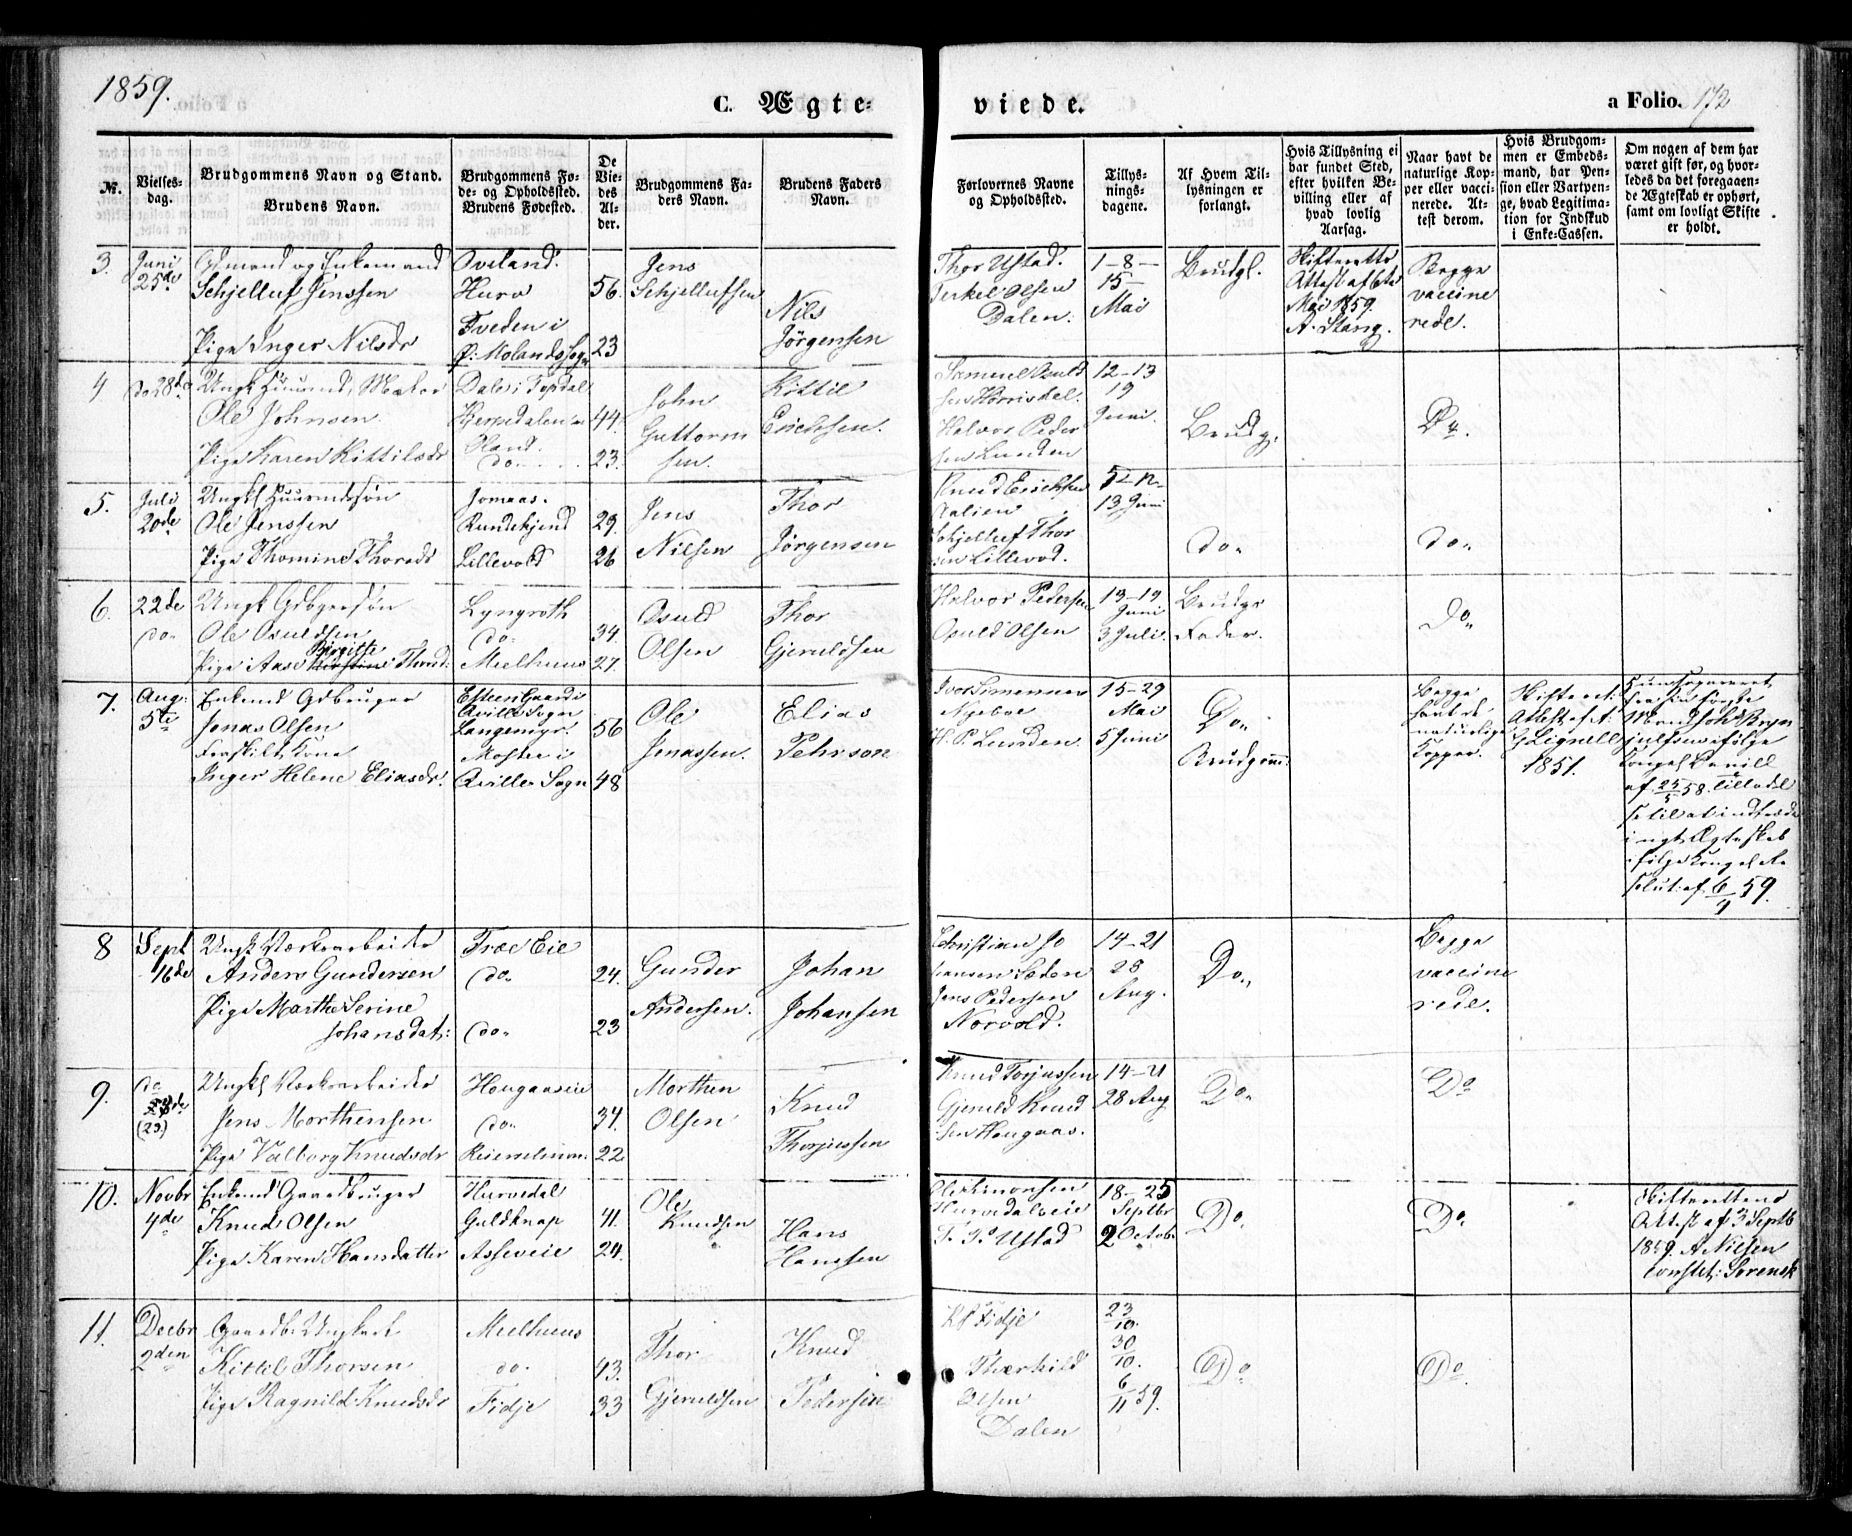 1859.
C. Ægte-
viede.
a Folio. 172
No.
Vielses-
dag.
Brudgommens Navn og Stand.
Brudens Navn.
Brudgommens Fø-
de- og Opholdssted.
Brudens Fødested.
De
Vie-
des
Al-
der.
Brudgommens Fa-
ders Navn.
Brudens Faders
Navn.
Forlovernes Navne
og Opholdssted.
Tillys-
nings-
dagene.
Af Hvem Til-
lysningen er
forlangt.
Hvis Tillysning ei
har fundet Sted,
efter hvilken Be-
villing eller af
hvad lovlig
Aarsag.
Naar havt de
naturlige Kop-
per eller vacci-
nerede. At-
test derom.
Hvis Brudgom-
men er Embeds-
mand, har Pen-
sion eller Vartpen-
ge, hvad Legitima-
tion for Indskud
i Enke-Cassen.
Om nogen af dem har
været gift før, og hvor-
ledes da det foregaaen-
de Ægteskab er ophørt,
samt om lovligt Skifte
er holdt.
3.
Juni
25de
Gdmand og Enkemand
Schjelluf Jenssen
Pige Inger Nilsdr
Oveland.
Hurv
Tveden i
Ø: Molands Sogn
56.
23
Jens
Schjellufsen
Nils
Jørgensen
Thor Ustad.
Terkel Olsen
Dalen.
1-8-
15-
Mai
Brudgl.
Skifteretts
Attest af 6te
Mai 1859.
A. Stang.
Begge
vaccine
rede.
4
do 28de
Ungk Huusmd,
Ole Johnsen
Pige Karen Kittilsdr
Dale i Topdal
Hjerpedalen i
Øland.
do
44.
23.
John
Guttorm
sen.
Kittil
Erichsen.
Samuel Osuld
sen Horrisdal.
Halvor Peder
sen Lunden
12-13
19
Juni
Brudg.
Do.
5.
Juli
20de
Ungkl Huusmdssøn
Ole Jenssen
Pige Thomine Thorsdr
Jomaas.
Rundekjend
Lillevold
29.
26
Jens
Nilsen
Thor
Jørgensen
Knud Erichsen
Aalien
Schjelluf Thor
sen Lillevod.
5-12-
13 Juni
do.
do.
6.
22de
do.
Ungk Gdbgersøn
Ole Osuldsen
Birgitte
Pige Aase Kirstine Thorsd:
Lyngroth
do.
Mielhuus
34.
27.
Osuld
Olsen
Thor
Gjeruldsen
Halvor Pedersen
Osuld Olsen
13-19
Juni
3 Juli.
Brudgs
Fader.
Do.
7.
Aug:
5te
Enkemd Gdbruger
Jonas Olsen
Fraskilt Kone
Inger Helene Eliasdr.
Esteen Gaard i
Aville Sogn
Langemyr.
Mosten i
Aville Sogn
56
48
Ole
Jonassen.
Elias
Pehrson
Iver Simonsen
Nyeboe
H. P. Lunden
15-29
Mai
5 Juni
Do.
Brudgom:
Begge
havt de
naturlige
Kopper.
Skifteret:
Attest af A:
G Lignell
1851.
fra sin første
Mand Johs Bryn
julfsen ifølge
Kongel Bevill
af 25/5 58. Tilladel
se til at indtræde
i nyt Ægteskab
ifølge Kongel Re
solut: af 6/7 59.
8
Sept
16de
Ungk Værksarbeider
Anders Gundersen
Pige Marthe Serine
Johansdat:
Træe Eie
do.
do.
24.
23
Gunder
Andersen.
Johan
Johansen
Christian Jo
hansen Læden
Jens Pedersen
Norvold.
14-21
28
Aug.
Do.
Begge
vaccine
rede.
9.
do
(23.)
Ungkl Værksarbeider
Jens Morthensen
Pige Valborg Knudsdr
Hougaaseie
do.
34.
22
Morthen
Olsen
Knud
Thorjussen
Knud Torjussen
Gjeruld Knud
sen Hougaas.
14-21
28 Aug
Do.
Do
10.
Novbr
4de
Enkemd Gaardbruger
Knud Olsen
Pige Karen Hansdatter
Hurvedal
Guldknap
Asseveie
41.
24.
Ole
Knudsen
Hans
Hanssen
Ole Simonsen
Hurvedalseie
T. P. Ustad
18-25
Septbr
2 Octob.
Do.
Do.
Skifterettens
Attest af 3 Septb
1859. A Nilsen
constit: Sorensk
11.
Decbr
2den
Gaardb. Ungkarl
Kittil Thorsen
Pige Ragnild Knudsdr
Mielhuus
do.
Fidje
43.
33
Thor
Gjeruldsen
Knud
Pedersen
Fidje
Therkild
Olsen
Dalen
23/10.
30/10.
6/11 59.
Do
Do.